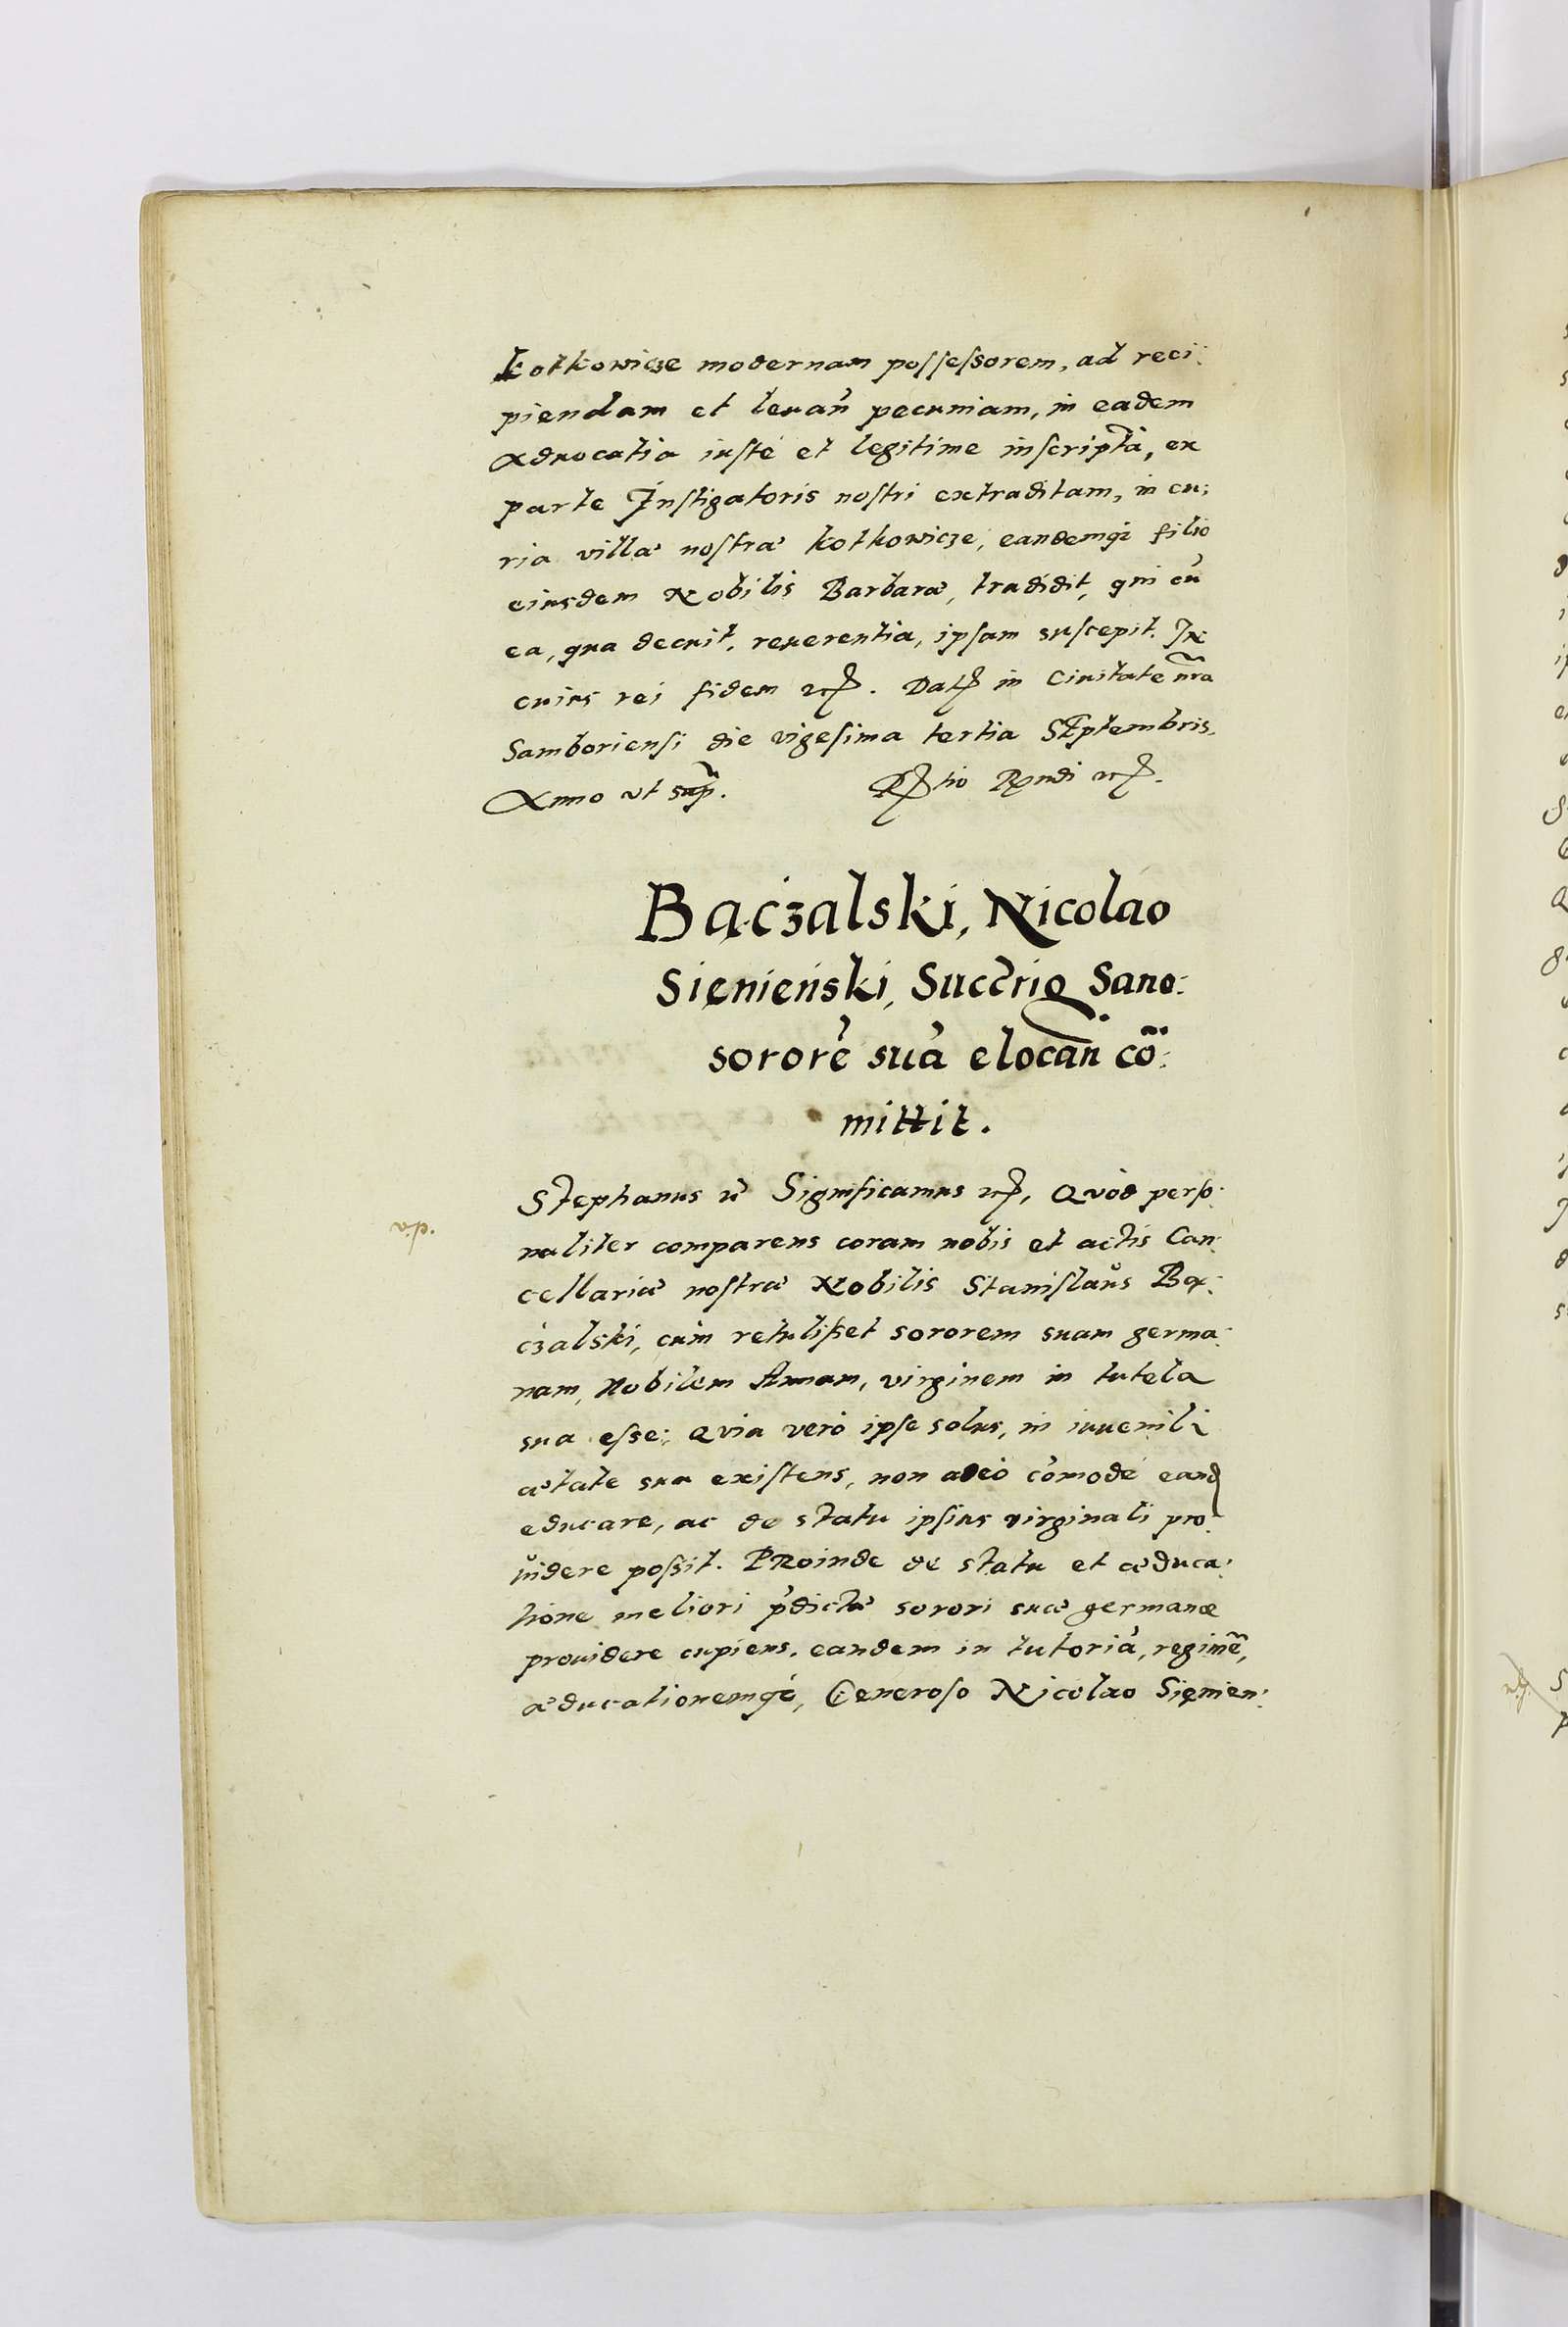 Kotkowicze modernam possessorem, ad reci:
piendam et levan̄ pecuniam, in eadem
Advocatia iustè et legitime inscriptā, ex
parte Instigatoris nostri extraditam, in cu:
ria villæ nostræ Kotkowicze, eandemq; filio
eiusdem Nobilis Barbaræ, tradidit, qui cū
ea, qua decuit, reuerentia, ipsam suscepit. In
cuius rei fidem etc. Dat in Ciuitate nr̄a
Samboriensi die vigesima tertia SEptembris.
Anno ut sup̄.
Rtio Rndi etc.
Bączalski, Nicolao
Sienieński, Succ̄rią Sano:
sororē suā elocan̄ cō:
mittit.
Stephanus etc Significamus etc, Quòd perso:
naliter comparens coram nobis et actis Can:
cellariæ nostræ Nobilis Stanislaus Bą:
czalski, cùm retulisset sororem suam germa:
nam, Nobilem Annam, virginem in tutela
sua esse: Quia verò ipse solus, in iuuenili
ætate sua existens, non adeò cōmodè eand
educare, ac de statu ipsius virginali pro:
uidere possit. PRoinde de statu et æduca:
tione meliori p̄dictæ sorori suæ germanæ
prouidere cupiens, eandem in tutoriā, reginē,
æducationemq;, Generoso Nicolao Sienien: